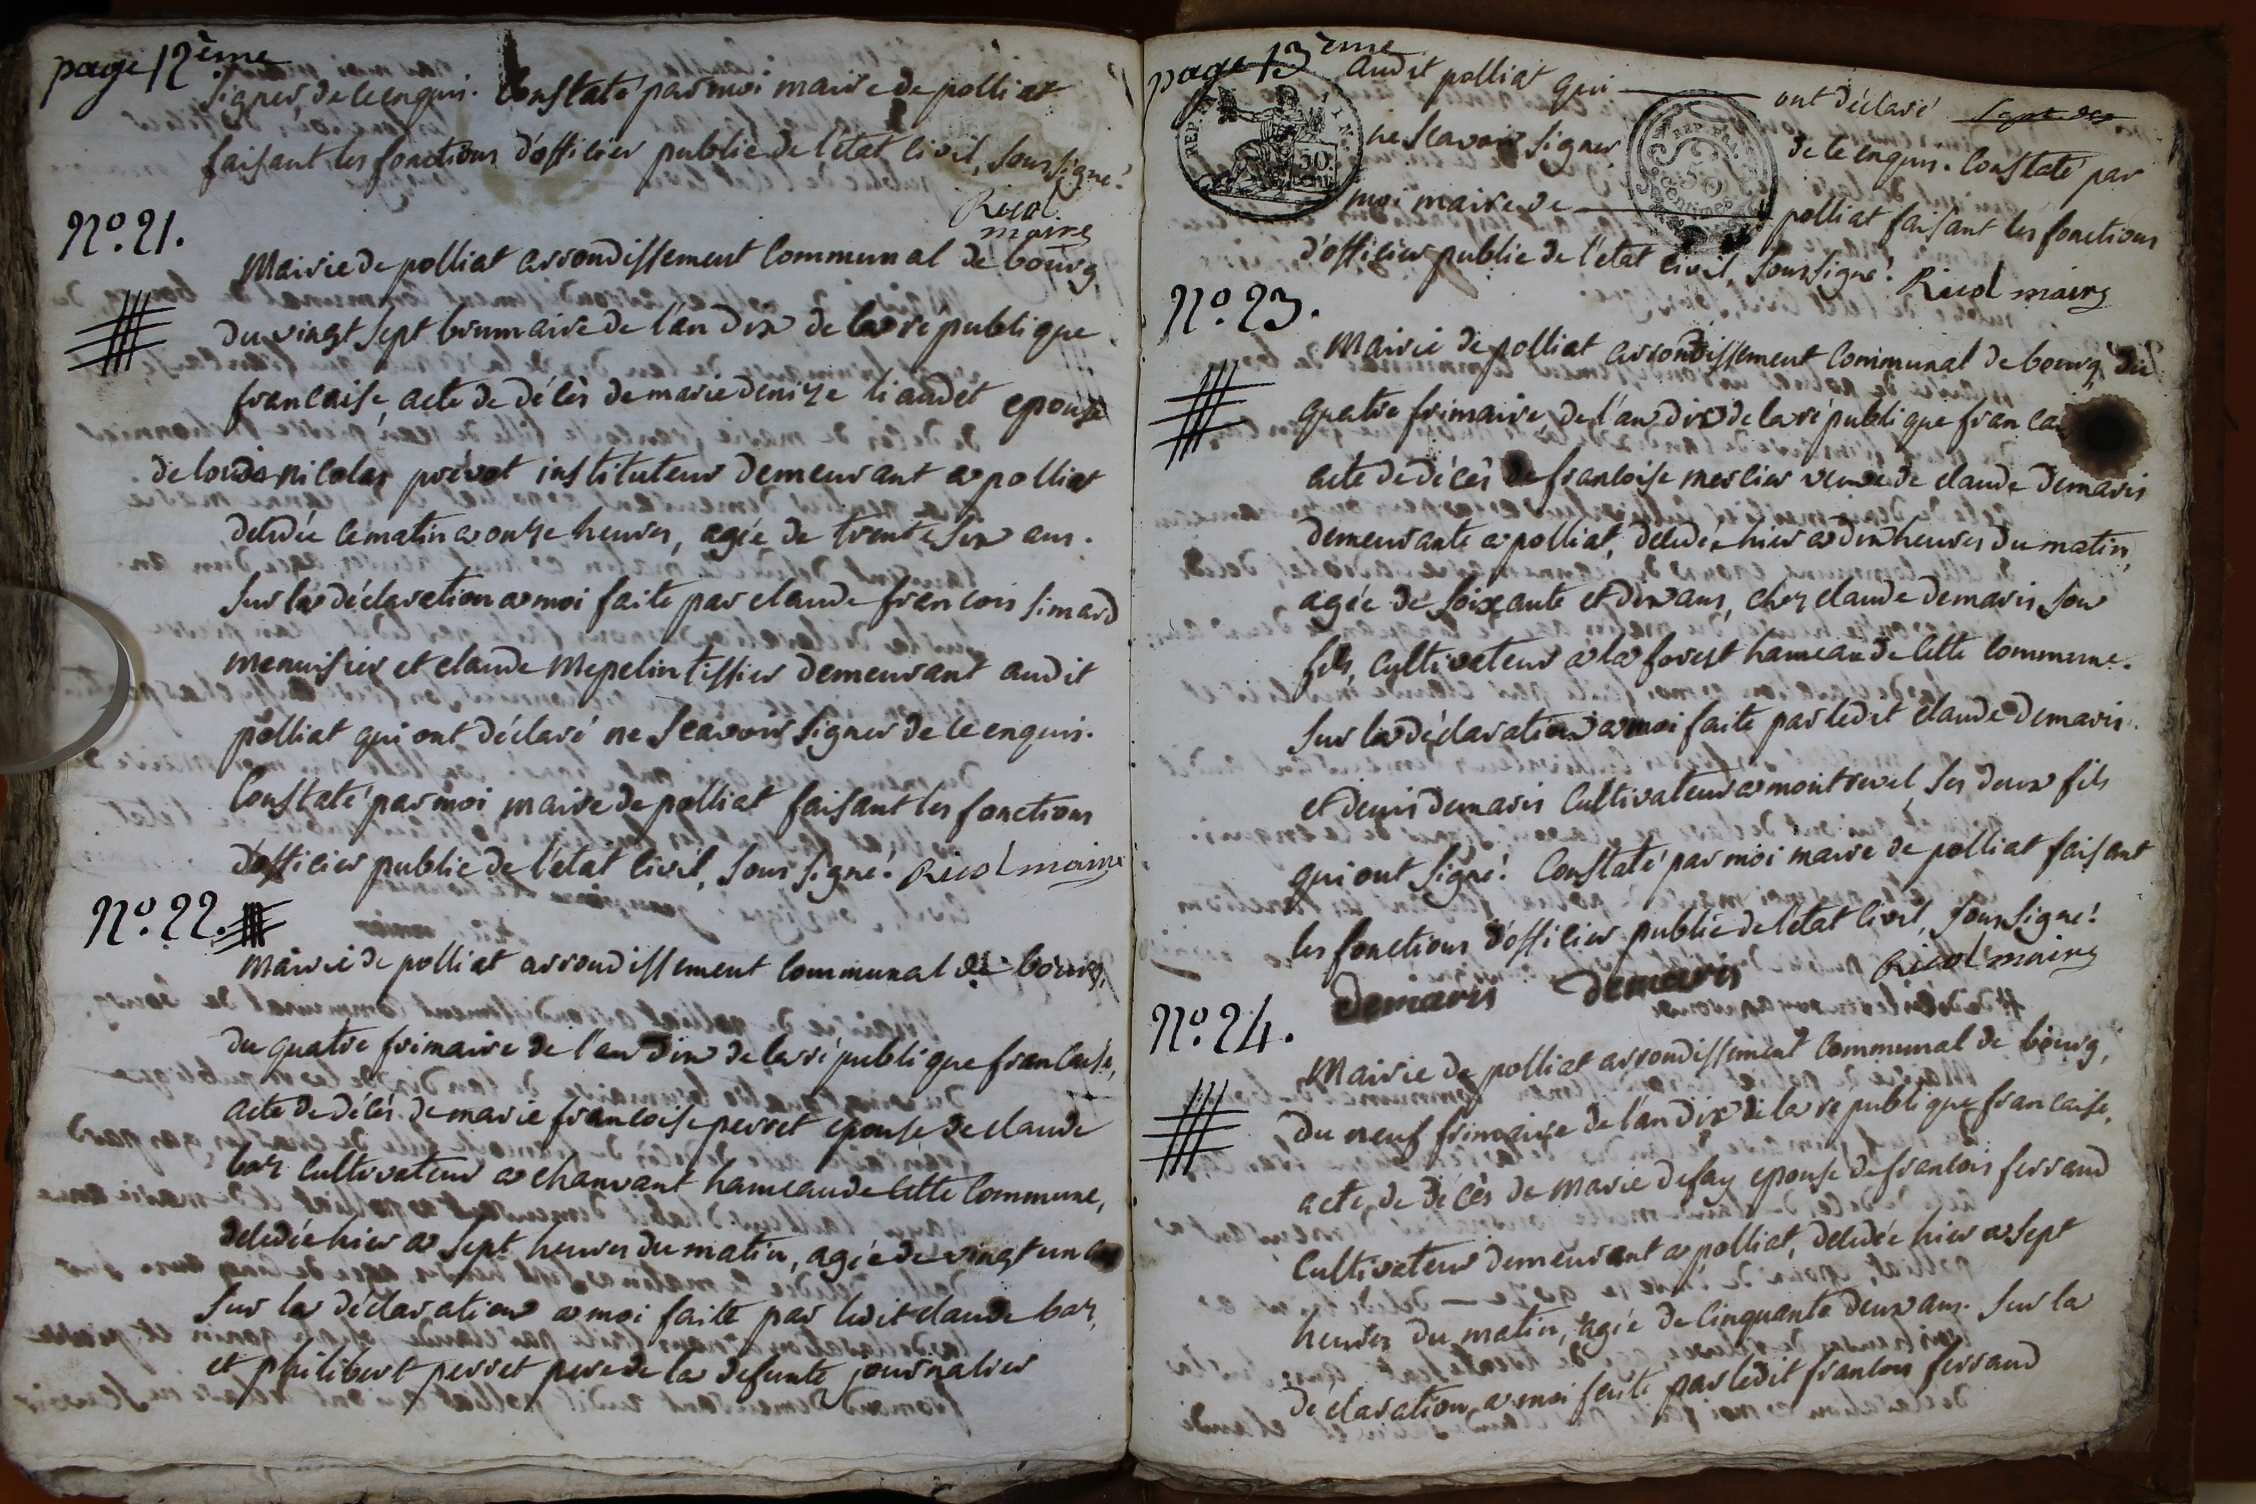 page 12ème
signer, de ce enquis. Constaté par moi maire de polliat
faisant les fonctions d'officier public de l'état civil, soussigné.
Ricol
maire
N.º 21.
Mairie de polliat arrondissement Communal de bourg,
Du vingt sept brumaire de l'an dix de la republique
francaise, acte de décès de marie denize liaudet epouse
de louis nicolas prévot instituteur demeurant a polliat
décédée ce matin a onze heures, agée de trente six ans.
Sur la déclaration a moi faite par claude francois simard
menuisier et claude Mepelin tissier demeurant audit
polliat qui ont déclaré ne scavoir signer de ce enquis.
Constaté par moi maire de polliat faisant les fonctions
d'officier public de l'état civil, soussigné. Ricol maire
N.º 22.
Mairie de polliat arrondissement Communal de bourg,
du quatre frimaire de l'an dix de la république francaise,
acte de décès de marie francoise perret epouse de claude
baz cultivateur a chanvant hameau de cette Commune,
décédée hier a sept heures du matin, agée de vingt un
Sur la déclaration a moi faite par ledit claude baz,
et philibert perret pere de la defunte journalier
page 13ème
audit polliat qui ont déclaré
REP. FRA.
50
CENT.
REP. FRA.
50
centimes
ne scavoir signer, de ce enquis. Constaté par
moi maire de polliat faisant les fonctions
d'officier public de l'état civil, soussigné. Ricol maire
N.º 23.
Mairie de polliat arrondissement Communal de bourg, du
quatre frimaire, de l'an dix de la république francai
acte de décès de francoise mercier veuve de claude demaris
demeurante a polliat, décédée hier a dix heures du matin,
agée de soixante et dix ans, chez claude demaris son
fils, cultivateur a la forest hameau de cette commune.
Sur la déclaration a moi faite par ledit claude demaris
et denis demaris Cultivateur a montrevel, ses deux fils
qui ont signé. Constaté par moi maire de polliat faisant
les fonctions d'officier public de l'état civil, soussigné.
demaris demaris Ricol maire
N.º 24.
Mairie de polliat arrondissement Communal de bourg,
Du neuf frimaire de l'an dix de la republique francaise,
acte de décès de marie defay epouse de francois ferraud
Cultivateur demeurant a polliat, décédée hier a sept
heures du matin, agée de cinquante deux ans. Sur la
déclaration a moi faite par ledit francois ferraud